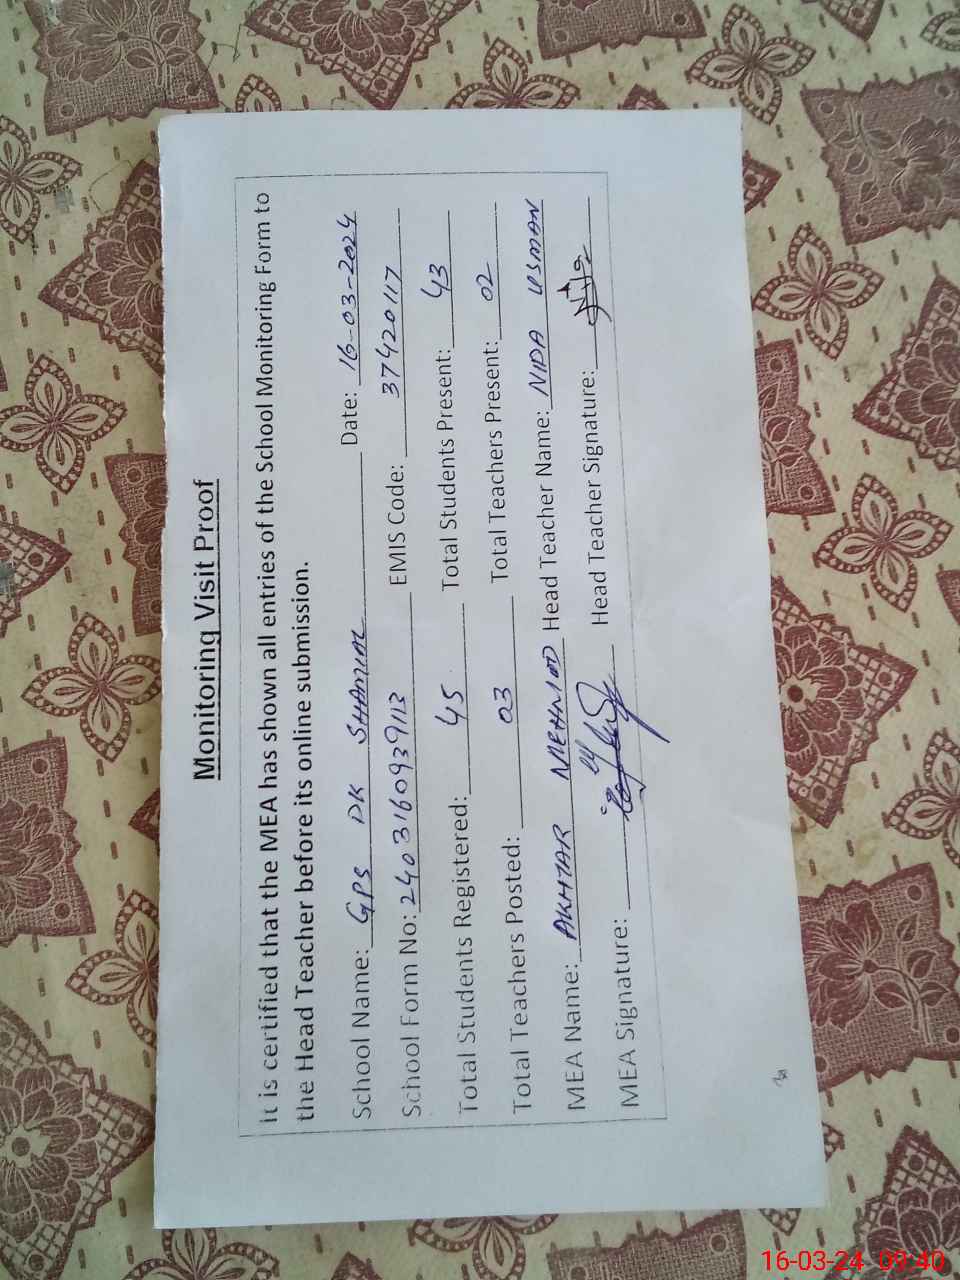 Monitoring Visit Proof
It is certified that the MEA has shown all entries of the School Monitoring Form to
the Head Teacher before its online submission.
School Name: GPS DK SHAMIAL Date: 16-03-2024
School Form No: 2403160939113 EMIS Code: 37420117
Total Students Registered: 45 Total Students Present: 43
Total Teachers Posted: 03 Total Teachers Present: 02
MEA Name: AKHTAR MEHMOOD Head Teacher Name: NIDA USMAN
MEA Signature: Head Teacher Signature: Nida
16-03-24 09:40